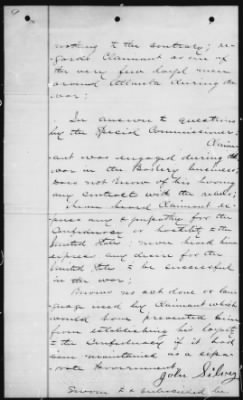 nothing to the contrary; re-
gards Claimant as one of
the very few loyal men
around Atlanta during the
war;
In answer to questions
by the Special Commissioner;
Claim-
ant was engaged during the
war in the business,
does not know of his having
any contracts with the rebels;
never heard Claimant ex-
press any sympathy for the
Confederacy or hostility to the
United States; never heard him
express any desire for the
United States to be successful
in the war;
Knows no act done or lan-
guage used by Claimant which
would have prevented him
from establishing his loyalty
to the Confederacy if it had
been maintained as a sepa-
rate Government.
John Silvey
Sworn to & subscribed be